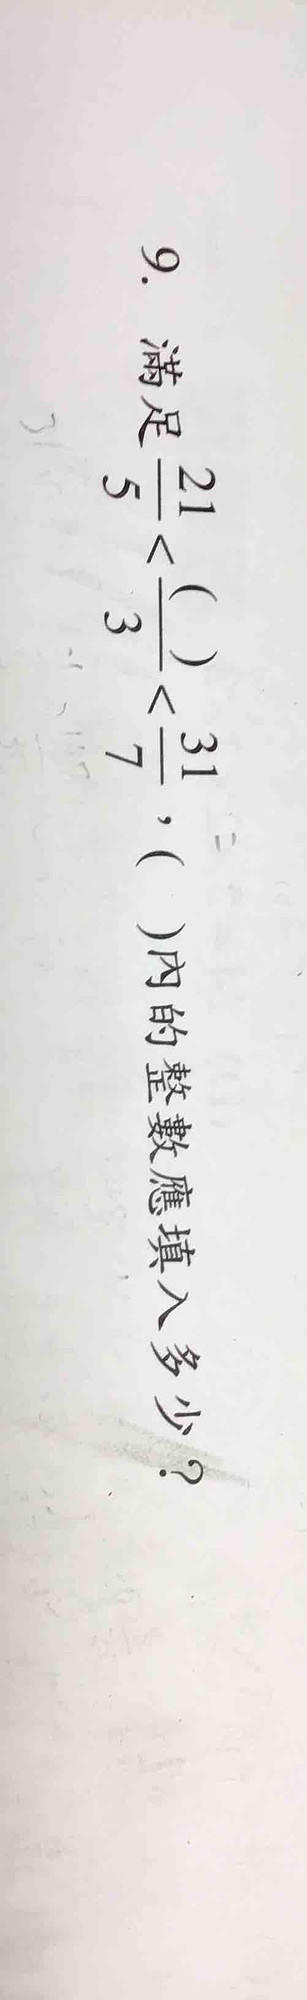 9. 滿足 21/5 < ( )/3 < 31/7，( )內的整數應填入多少？